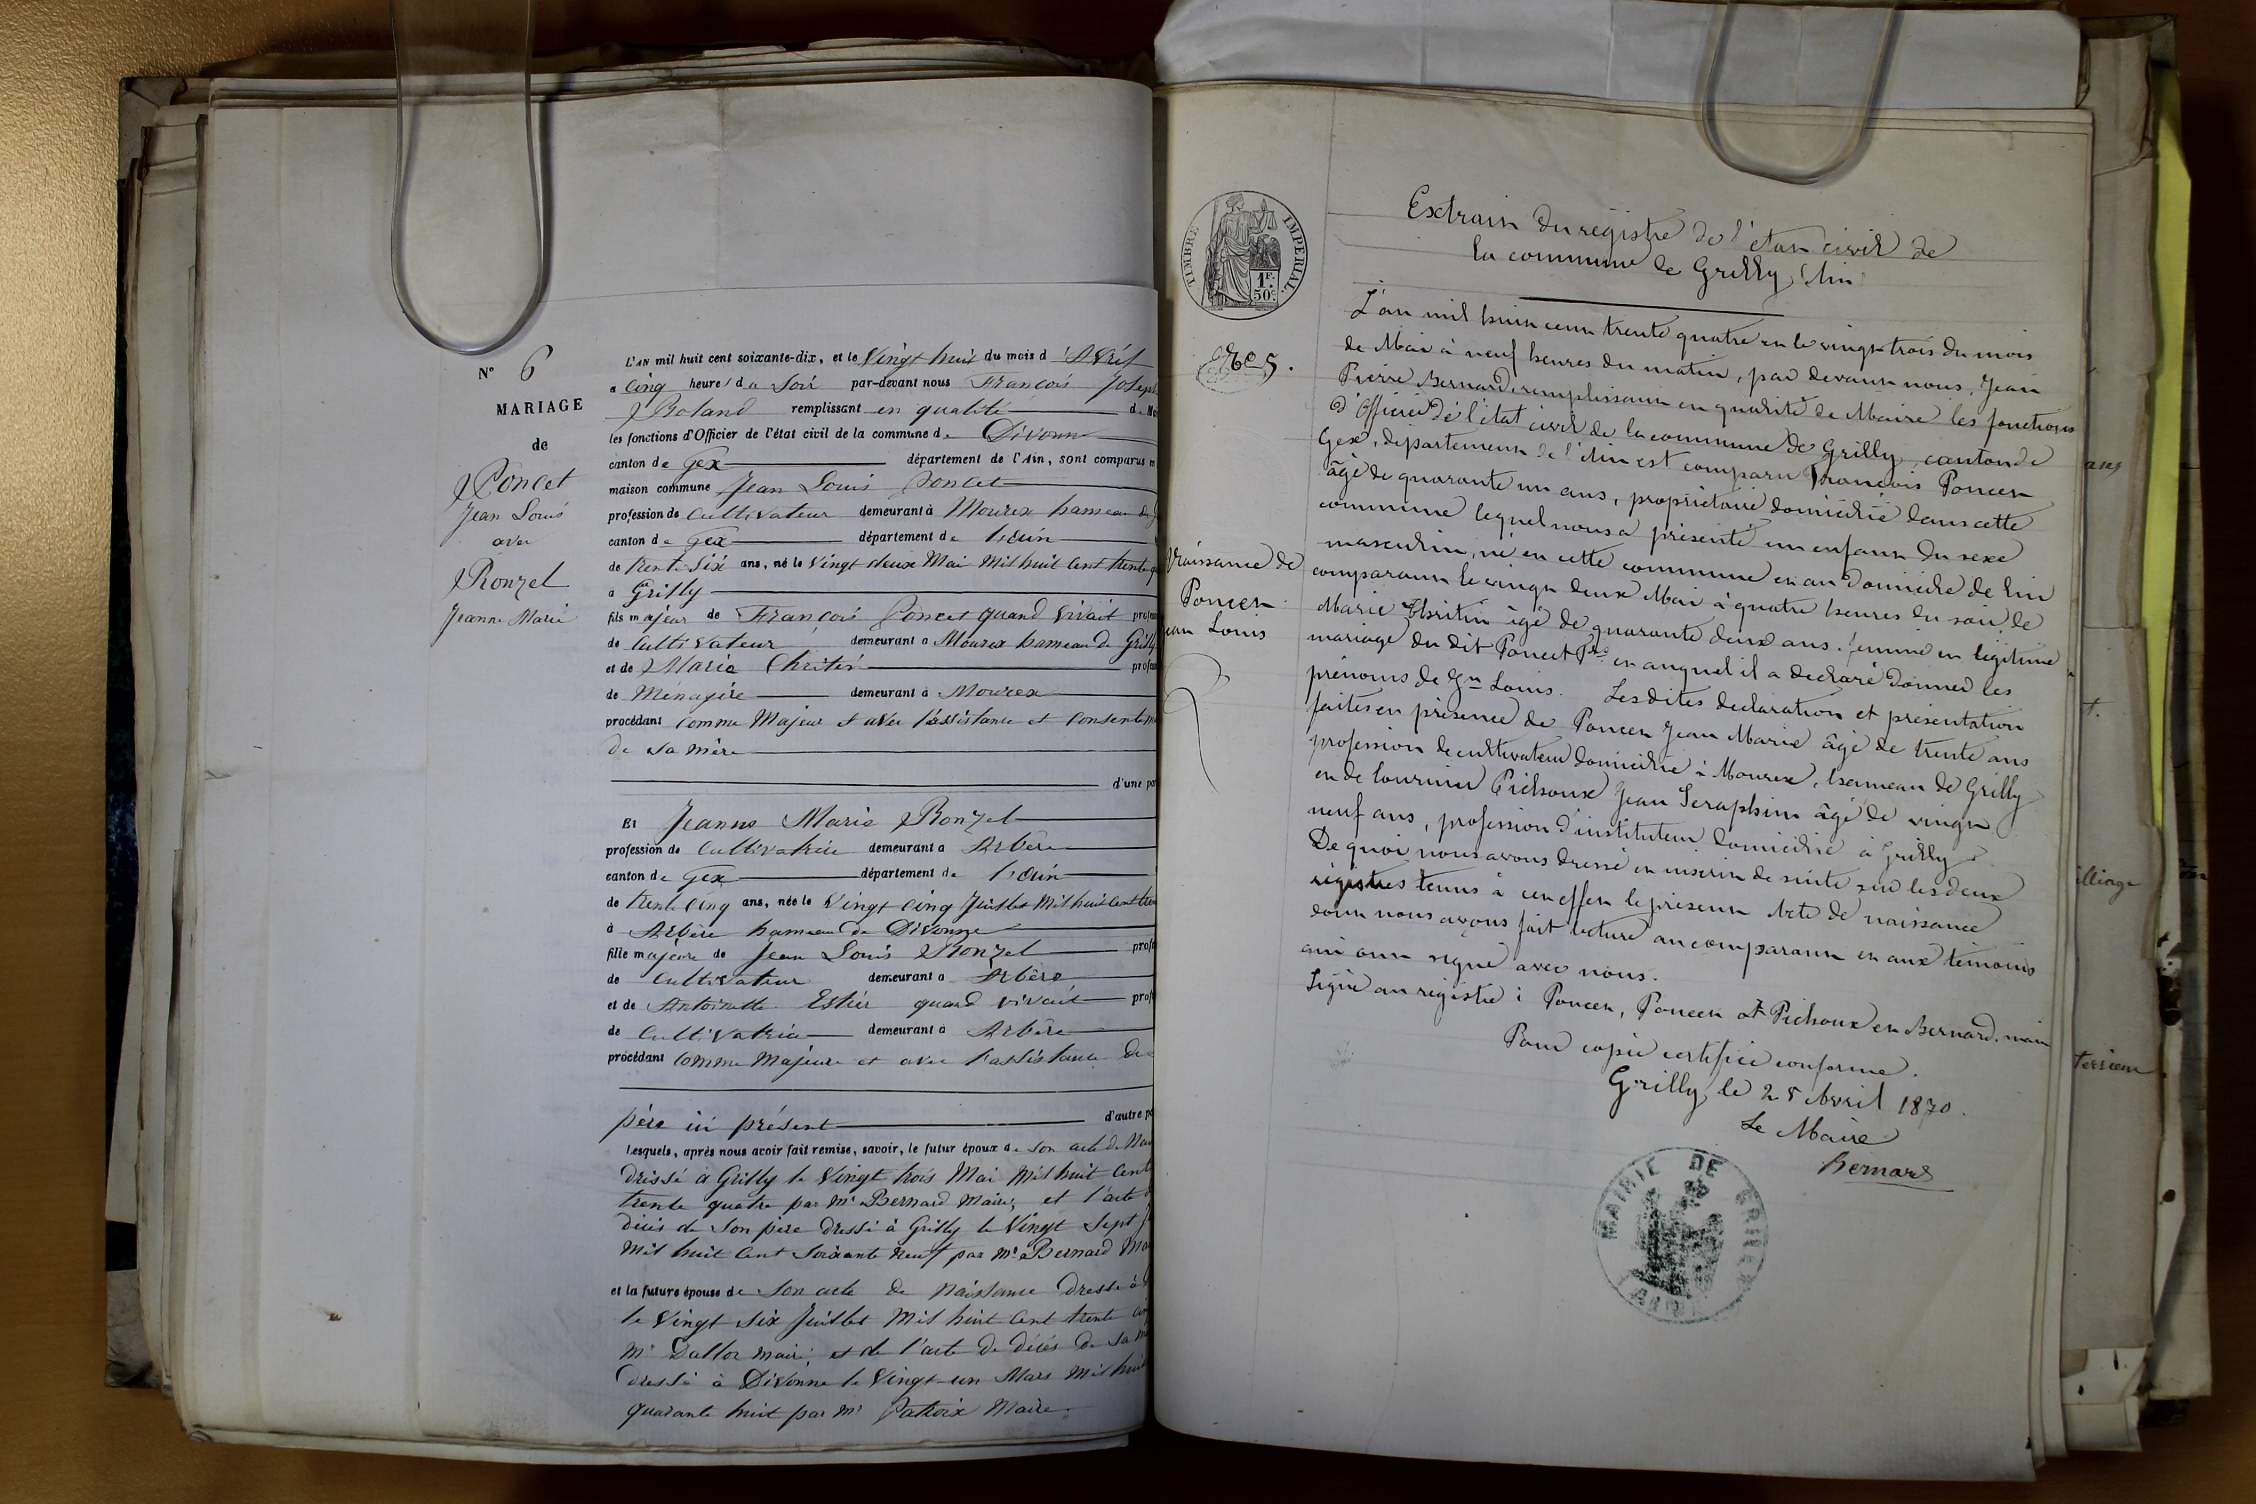 N° 6
MARIAGE
de
Poncet
Jean Louis
avec
Ronzel
Jeanne Marie
L'AN mil huit cent soixante-dix, et le Vingt huit du mois d'Avril
a Cinq heures du Soir par-devant nous François Joseph
Roland remplissant en qualité de
les fonctions d'Officier de l'état civil de la commune de Divonne
canton de Gex département de l'Ain, sont comparus
maison commune Jean Louis Poncet
profession de Cultivateur demeurant à Mourex hameau de
canton de Gex département de l'Ain
de trente Six ans, né le Vingt deux Mai Mil huit Cent trente
a Grilly
fils majeur de François Poncet quand vivait
de Cultivateur demeurant a Mourex hameau de Grilly
et de Marie Chritin
de Ménagère demeurant à Mourex
procédant comme Majeur et avec l'assistance et Consentement
de sa mère
d'une
Et Jeanne Marie Ronzel
profession de Cultivatrice demeurant a Arbère
canton de Gex département de l'Ain
de trente Cinq ans, née le Vingt Cinq Juillet Mil huit Cent
à Arbère hameau de Divonne
fille majeure de Jean Louis Ronzel
de Cultivateur demeurant a Arbère
et de Antoinette Estier quand vivait
de Cultivatrice demeurant à Arbère
procédant Comme Majeure et avec l'assistance de
père ici présent d'autre
Lesquels, après nous avoir fait remise, savoir, le futur époux de Son acte de
dressé à Grilly le Vingt trois Mai Mil huit Cent
trente quatre par Mr Bernard Maire, et l'acte
décès de Son père dressé à Grilly le Vingt Sept
Mil huit Cent Soixante Neuf par Mr Bernard
et la future épouse de Son acte de Naissance dressé à
le Vingt Six Juillet Mil huit Cent trente
Mr maire, et de l'acte de décès de sa
dressé à Divonne le Vingt-un Mars Mil huit
quarante huit par Mr Maire
TIMBRE IMPÉRIAL.
1F.
50c.
5.
Naissance de
Poncet
Jean Louis
Extrait du régistre de l'état civil de
la commune de Grilly (Ain
L'an mil huit cent trente quatre et le vingt-trois du mois
de Mai à neuf heures du matin, par devant nous, Jean
Pierre Bernard remplissant en qualité de Maire les fonctions
d'Officier de l'état civil de la commune de Grilly, canton de
Gex, département de l'Ain est comparu François Poncet
âgé de quarante un ans, propriétaire domicilié dans cette
commune lequel nous a présenté un enfant du sexe
masculin, né en cette commune et au domicile de lui
comparant le vingt deux Mai à quatre heures du soir de
Marie Chritin âgé de quarante deux ans, femme en légitime
mariage du dit Poncet Fis et auquel il a déclaré donner les
prénoms de Jn Louis. Les dites déclaration et présentation
faites en présence de Poncet Jean Marie âgé de trente ans
profession de cultivateur domicilié à Mourex, hameau de Grilly
et de Pichoux Jean Séraphin âgé de vingt
neuf ans, profession d'instituteur domicilié à Grilly
De quoi nous avons dressé et inscrit de suite sur les deux
régistres tenus à cet effet le présent Acte de naissance
dont nous avons fait lecture au comparant et aux témoins
qui ont signé avec nous.
Signé au registre : Poncet, Poncet et Pichoux et Bernard, maire
Pour copie certifiée conforme.
Grilly, le 25 Avril 1870.
Le Maire
Bernard
MAIRIE DE GRILLY
AIN